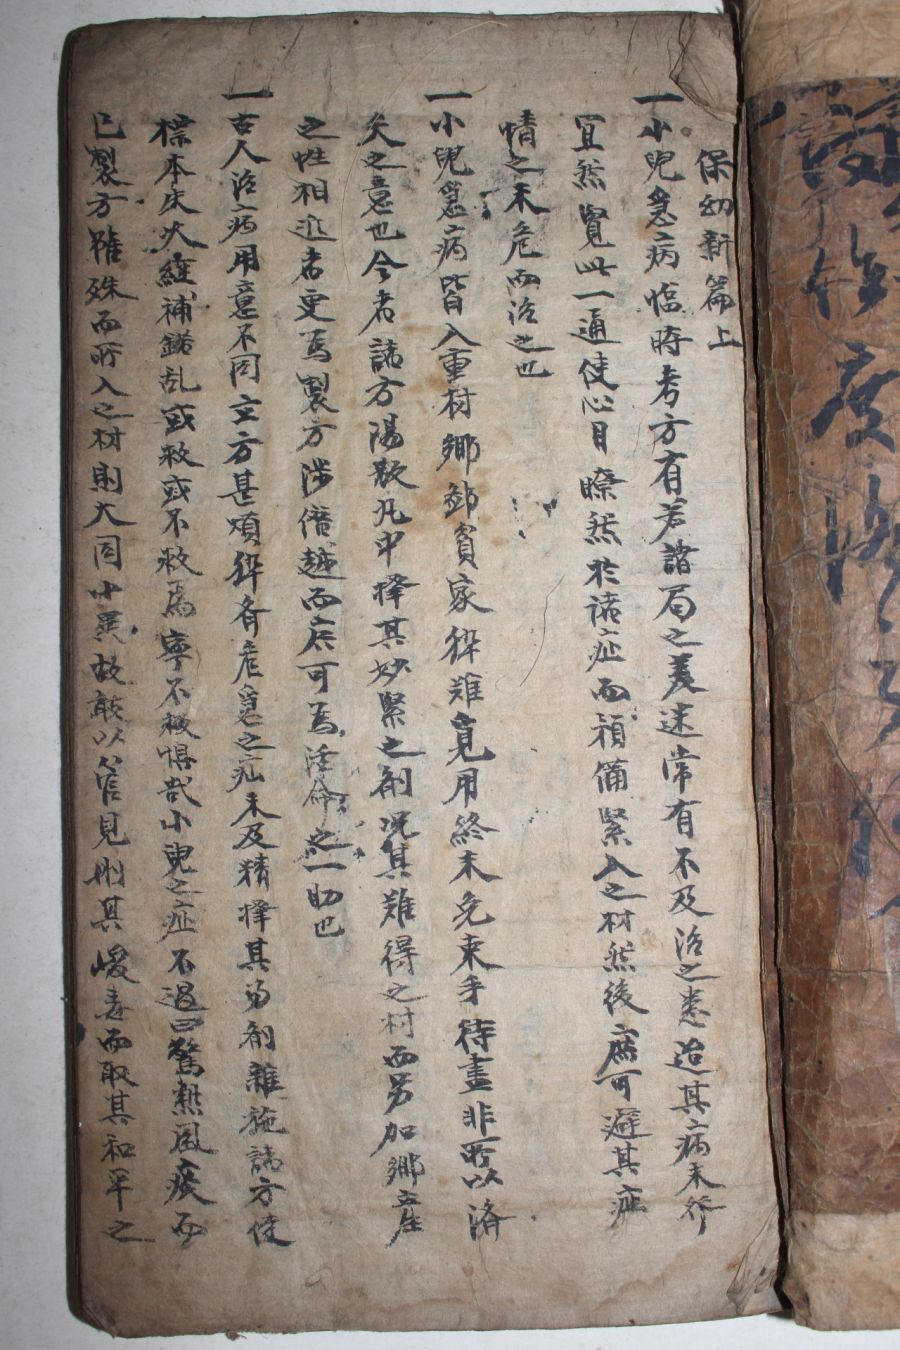 保幼新篇上
一小兒急病臨時考方有若諸局之差迷常有不及治之患迨其病未
宜然覽此一通使心目瞭然於諸症而預備緊入之材然後庶可避其症
情之未危而治之也
一小兒急病皆入重材鄉鄙貧家猝難覓用終未免束手待盡非所以濟
夭之意也今者諸方湯散凡中擇其妙緊之劑況其難得之材而另加鄉産
之性相近者更爲製方涉僭越而庶可爲活命之一助也
一古人治病用意不同立方甚煩猝看危急之疝未及精擇其當劑雜施諸方使
標本失補錯乱或救或不救焉寧不被惧哉小兒之症不過曰驚熱風痰而
已製方雖殊而所入之材則大同小異故敢以管見刪其峻毒而取其和平之